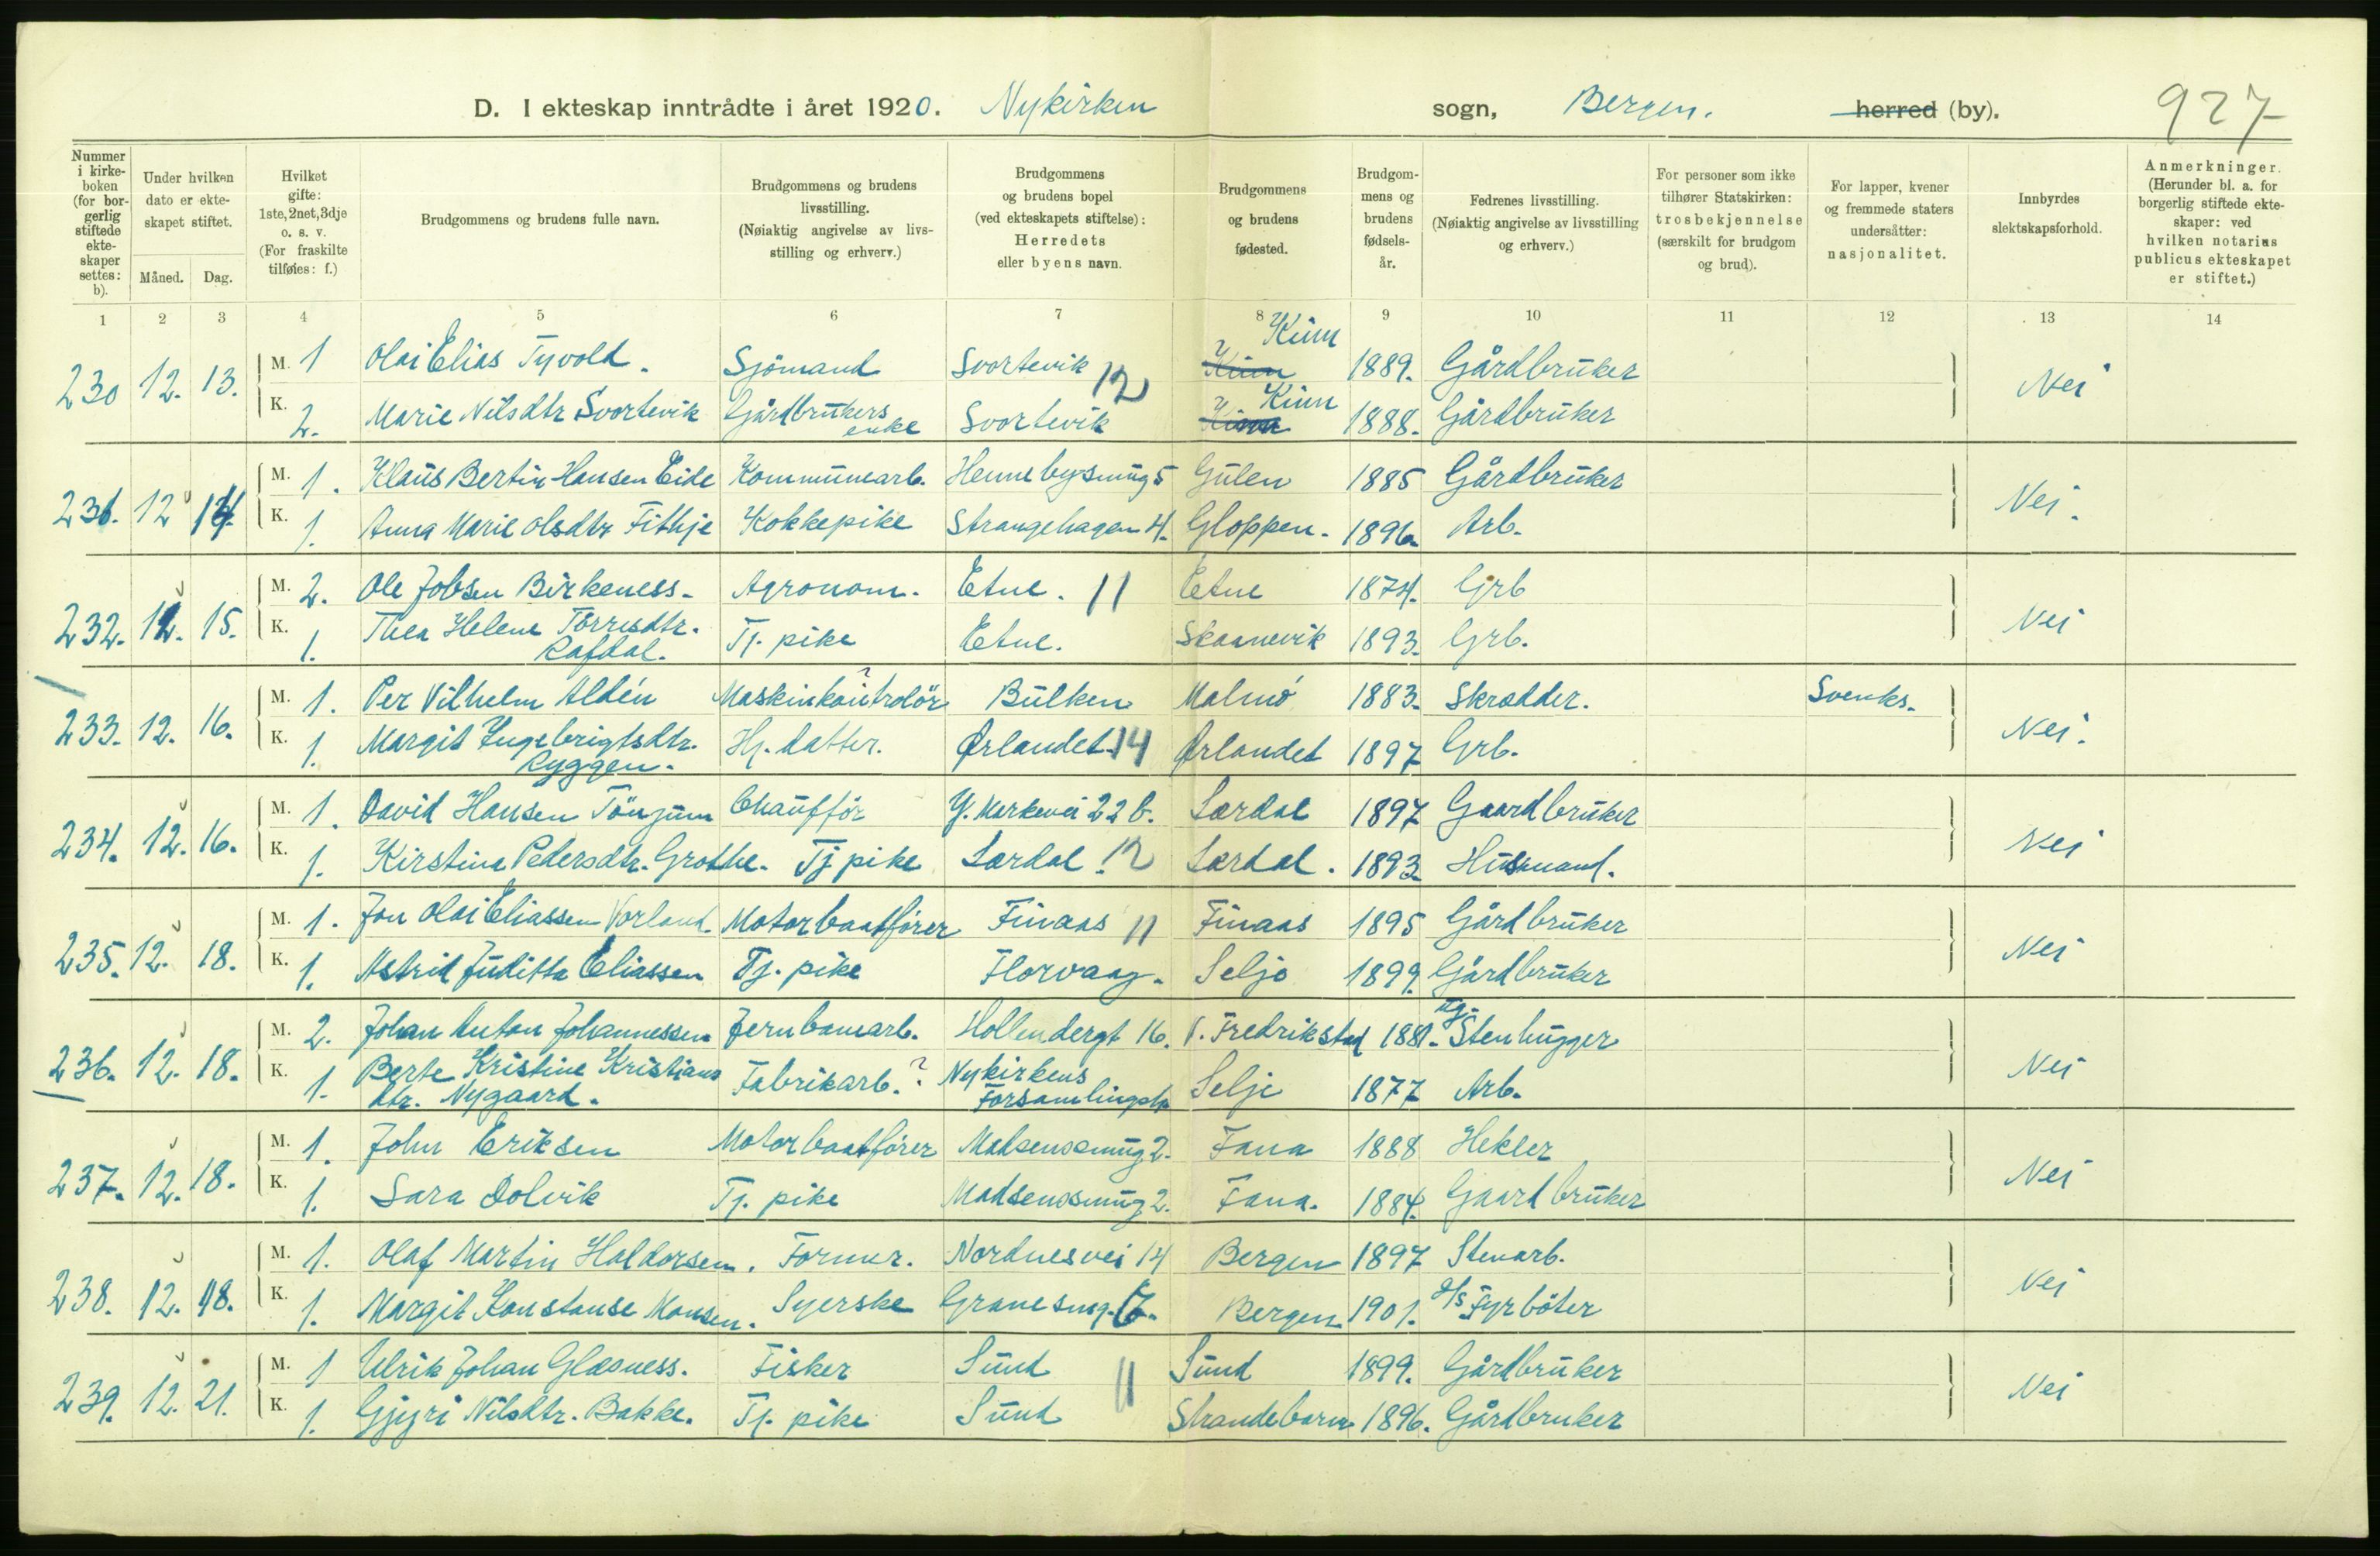 927
D. I ekteskap inntrådte i året 1920. Nykirken sogn, Bergen. herred (by).
Nummer i kirke- boken (for bor- gerlig stiftede ekte- skaper settes: b).
Under hvilken dato er ekte- skapet stiftet.
Måned. Dag.
Hvilket gifte: 1ste, 2net, 3dje o. s. v. (For fraskilte tilføies: f.)
Brudgommens og brudens fulle navn.
Brudgommens og brudens livsstilling. (Nøiaktig angivelse av livs- stilling og erhverv.)
Brudgommens og brudens bopel (ved ekteskapets stiftelse): Herredets eller byens navn.
Brudgommens og brudens fødested.
Brudgom- mens og brudens fødsels- år.
Fedrenes livsstilling. (Nøiaktig angivelse av livsstilling og erhverv.)
For personer som ikke tilhører Statskirken: trosbekjennelse (særskilt for brudgom og brud).
For lapper, kvener og fremmede staters undersåtter: nasjonalitet.
Innbyrdes slektskapsforhold.
Anmerkninger. (Herunder bl. a. for borgerlig stiftede ekte- skaper: ved hvilken notarius publicus ekteskapet er stiftet.)
1 2 3 4 5 6 7 8 9 10 11 12 13 14
230 12. 13. M. 1 Olai Elias Tyvold. Sjömand Svortevik 12 Kinn Kinn 1889. Gårdbruker Nei
K. 2. Marie Nilsdtr Svortevik Gårdbrukers enke Svortevik Kinn Kinn 1888. Gårdbruker
231. 12 14. M. 1. Klaus Bertin Hansen Eide Kommunearb. Hennebysmug 5 Gulen 1885 Gårdbruker Nei.
K. 1. Anna Marie Olsdtr Fithje Kokkepike Strangehagen 4. Gloppen. 1896. Arb.
232. 12. 15. M. 2. Ole Jobsen Birkeness. Agronom. Etne. 11 Etne 1874. Grb Nei
K. 1. Thea Helene Törresdtr. Rafdal. Tj. pike Etne. Skaanevik 1893. Grb.
233. 12. 16. M. 1. Per Vilhelm Aldén Maskinkontrolör ? Bulken Malmö 1883. Skrædder. Svensk. Nei.
K. 1. Margit Ingebrigtsdtr. Ryggen. Hj. datter. Ørlandet 14 Ørlandet 1897 Grb.
234. 12. 16. M. 1. David Hansen Tönjum Chauffør Y. Markevei 22 b. Lærdal 1897 Gaardbruker Nei
K. 1. Kirstina Pedersdtr. Grothe. Tj pike Lærdal. 12 Lærdal. 1893. Husmand.
235. 12. 18. M. 1. Jon Olai Eliassen Vorland. Motorbaatfører Finaas 11 Finaas 1895 Gårdbruker Nei
K. 1. Astrid Juditta Eliassen Tj. pike Florvaag. Selje 1899. Gårdbruker
236. 12. 18. M. 2. Johan Anton Johannessen Jernbanearb. Hollendergt 16. V. Fredrikstad 1881. Stenhugger Nei
K. 1. Berte Kristine Kristians dtr. Nygaard. Fabrikarb. ? Nykirkens Forsamlingsh. Selje 1877 Arb.
237. 12. 18. M. 1. John Eriksen Motorbaatfører Madsenssmug 2. Fana 1888 Hekler Nei
K. 1. Sara Dolvik Tj. pike Madsenssmug 2. Fana. 1884. Gaardbruker
238. 12. 18. M. 1. Olaf Martin Haldorsen. Former. Nordnesvei 14 Bergen 1897 Stenarb. Nei
K. 1. Margit Konstanse Monsen. Syerske Granesmg. 6. Bergen 1901. d/s Fyrböter
239. 12. 21. M. 1 Ulrik Johan Glæsness. Fisker Sund 11 Sund 1899. Gårdbruker Nei
K. 1. Gjyri Nilsdtr. Bakke. Tj. pike Sund Strandebarm 1896. Gårdbruker